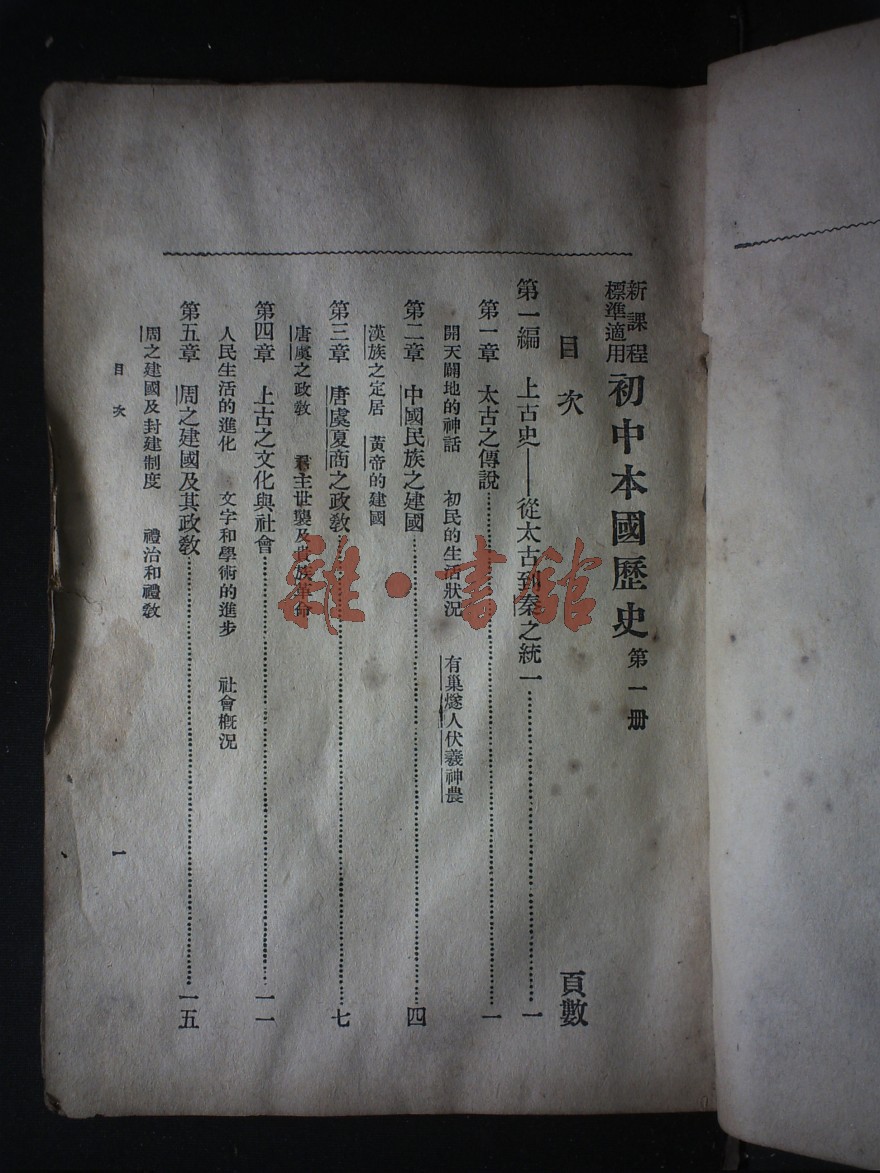 新課程標準適用 初中本國歷史 第一册
目次 頁數
第一編 上古史——從太古到秦之統一……一
第一章 太古之傳說……一
開天闢地的神話 初民的生活狀況 有巢燧人伏羲神農
第二章 中國民族之建國……四
漢族之定居 黃帝的建國
第三章 唐虞夏商之政敎……七
唐虞之政敎 君主世襲及貴族革命
第四章 上古之文化與社會……一一
人民生活的進化 文字和學術的進步 社會槪況
第五章 周之建國及其政敎……一五
周之建國及封建制度 禮治和禮敎
目次 一
雜·書館